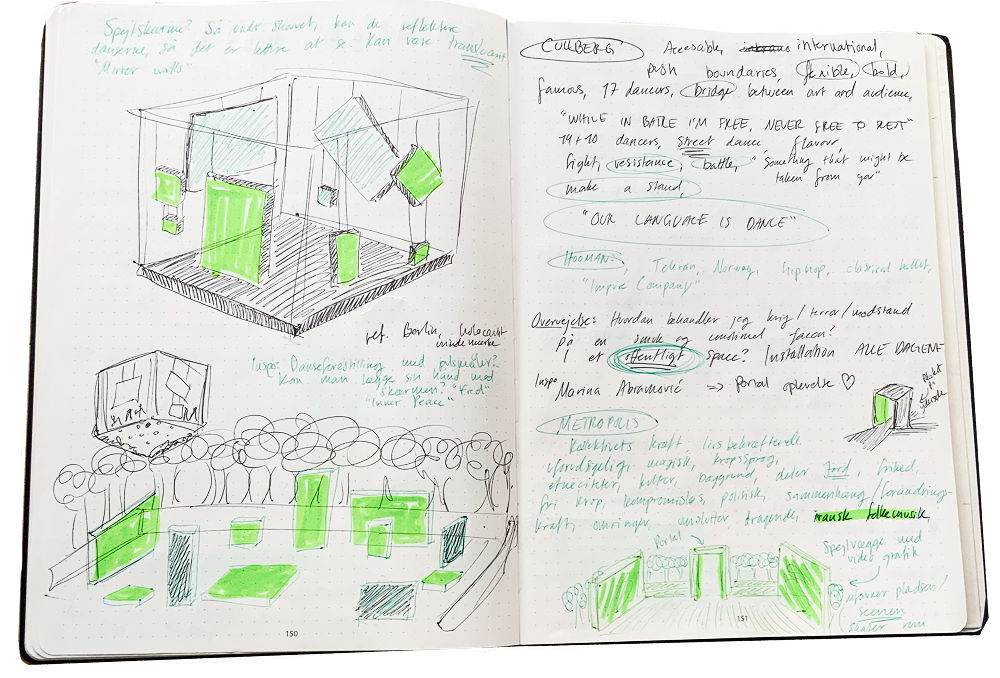 Spejlskærme? Så endt skævt, kan de reflektere
danserne, så det er lettere at se. Kan være translucent
"Mirror walls"
ref. Berlin, Holocaust
mindemærke
Inspo: Danseforestilling med publikum?
"Kan man lægge sin hånd mod
skærmen? "Fred"
"Inner Peace"
150
CULLBERG Accesable, international,
push boundaries, flexible, bold,
famous, 17 dancers, bridge between art and audience,
"WHILE IN BATLE I'M FREE, NEVER FREE TO REST"
19+10 dancers, street dance, flavour,
fight, resistance, battle, "Something that might be
taken from you"
make a stand,
"OUR LANGUAGE IS DANCE"
HOOMAN: , Teheran, Norway, hiphop, classical ballet,
"Impure Company"
Overvejelse: Hvordan behandler jeg krig/terror/modstand
på en smuk og facon?
I et offentligt space? Installation ALLE DAGENE
Inspo Marina Abramović => Portal oplevelse ♡
METROPOLIS
Kollektivets kraft, livsbekræftende,
uforudsigelig, magisk, kropssprog,
etniciteter, kulter, baggrund, deler jord, frihed,
fri krop, kompromisløs, politisk, sammenhæng/forandrings-
kraft, omringer, omslutter, dragende, iransk folkemusik,
Portal
Spejlvægge med
video grafik
udformer pladsen/
scenen
skaber rum
151